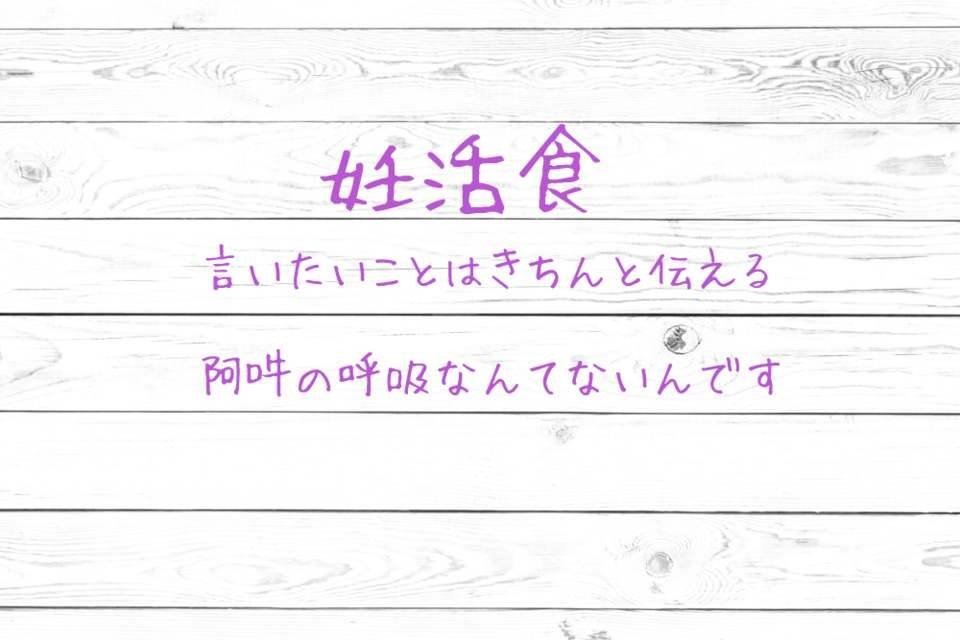 妊活食
言いたいことはきちんと伝える
阿吽の呼吸なんてないんです